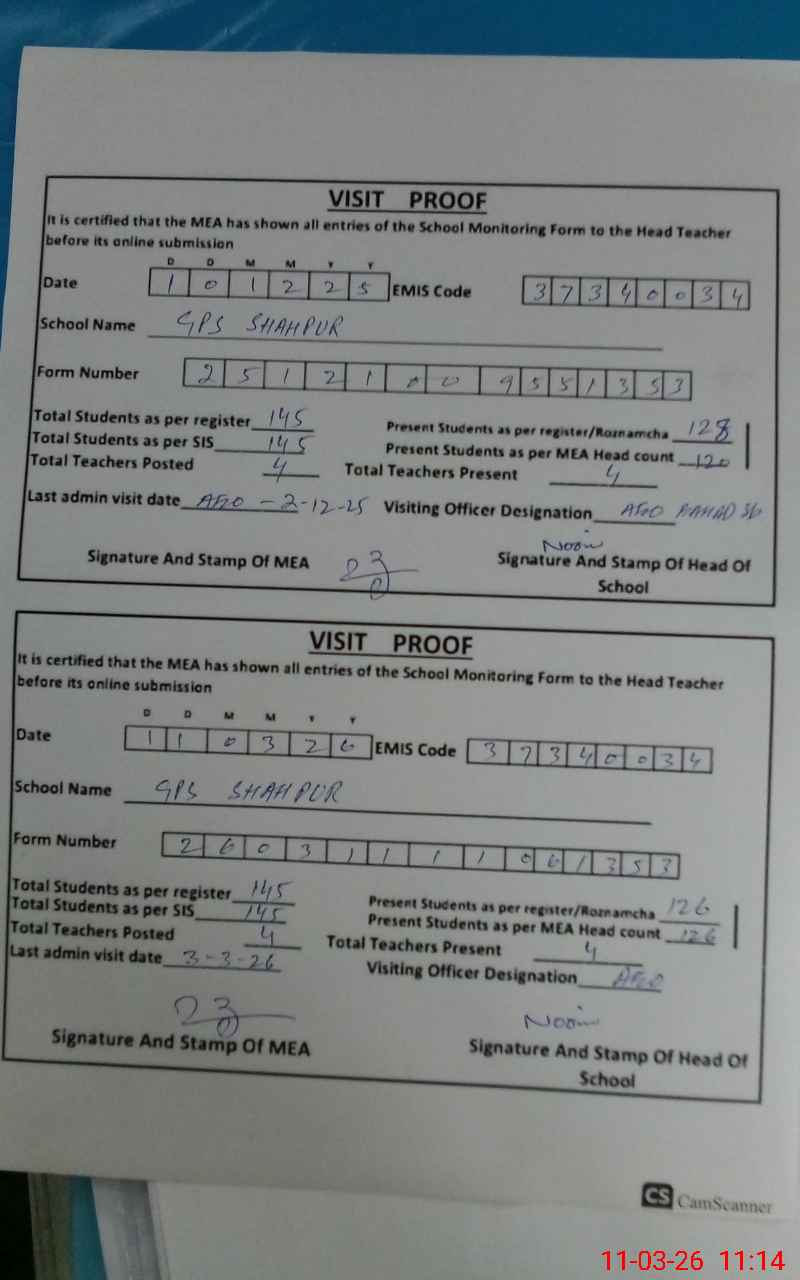 VISIT PROOF
It is certified that the MEA has shown all entries of the School Monitoring Form to the Head Teacher
before its online submission
D D M M Y Y
Date 1 0 1 2 2 5 EMIS Code 3 7 3 4 0 0 3 4
School Name GPS SHAHPUR
Form Number 2 5 1 2 1 0 0 9 5 5 1 3 5 3
Total Students as per register 145 Present Students as per register/Roznamcha 128
Total Students as per SIS 145 Present Students as per MEA Head count 120
Total Teachers Posted 4 Total Teachers Present 4
Last admin visit date AEO - 2-12-25 Visiting Officer Designation AEO
Noor
Signature And Stamp Of MEA Signature And Stamp Of Head Of
School
VISIT PROOF
It is certified that the MEA has shown all entries of the School Monitoring Form to the Head Teacher
before its online submission
D D M M Y Y
Date 1 1 0 3 2 6 EMIS Code 3 7 3 4 0 0 3 4
School Name GPS SHAHPUR
Form Number 2 6 0 3 1 1 1 1 0 6 1 3 5 3
Total Students as per register 145 Present Students as per register/Roznamcha 126
Total Students as per SIS 145 Present Students as per MEA Head count 126
Total Teachers Posted 4 Total Teachers Present 4
Last admin visit date 3-3-26 Visiting Officer Designation AEO
Noor
Signature And Stamp Of MEA Signature And Stamp Of Head Of
School
CS CamScanner
11-03-26 11:14